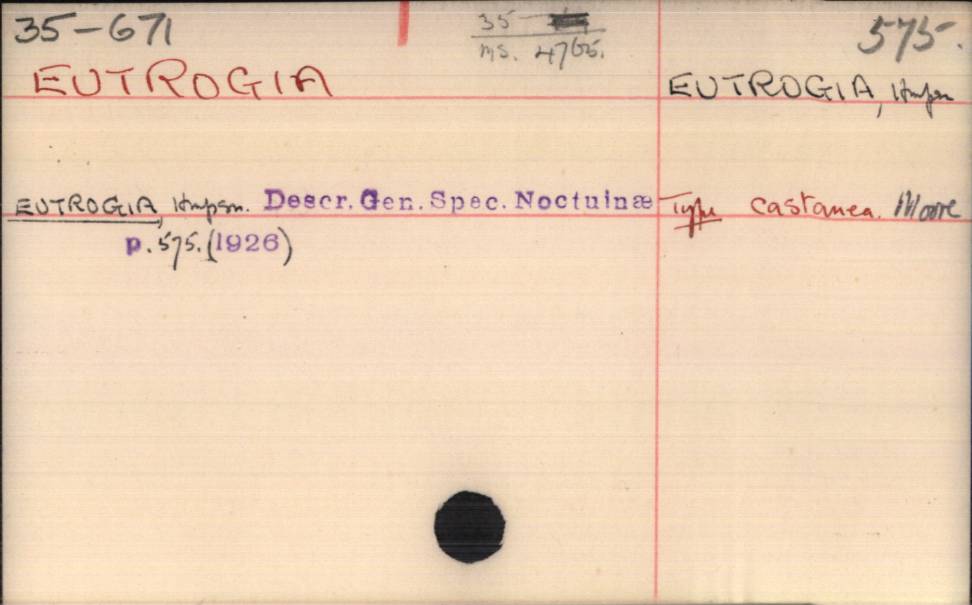 35-671
35
ms. 4765.
575.
EUTROGIA
EUTROGIA, Hmpsn
EUTROGIA, Hmpsn. Descr. Gen. Spec. Noctuinæ
p. 575. (1926)
Type castanea. Moore